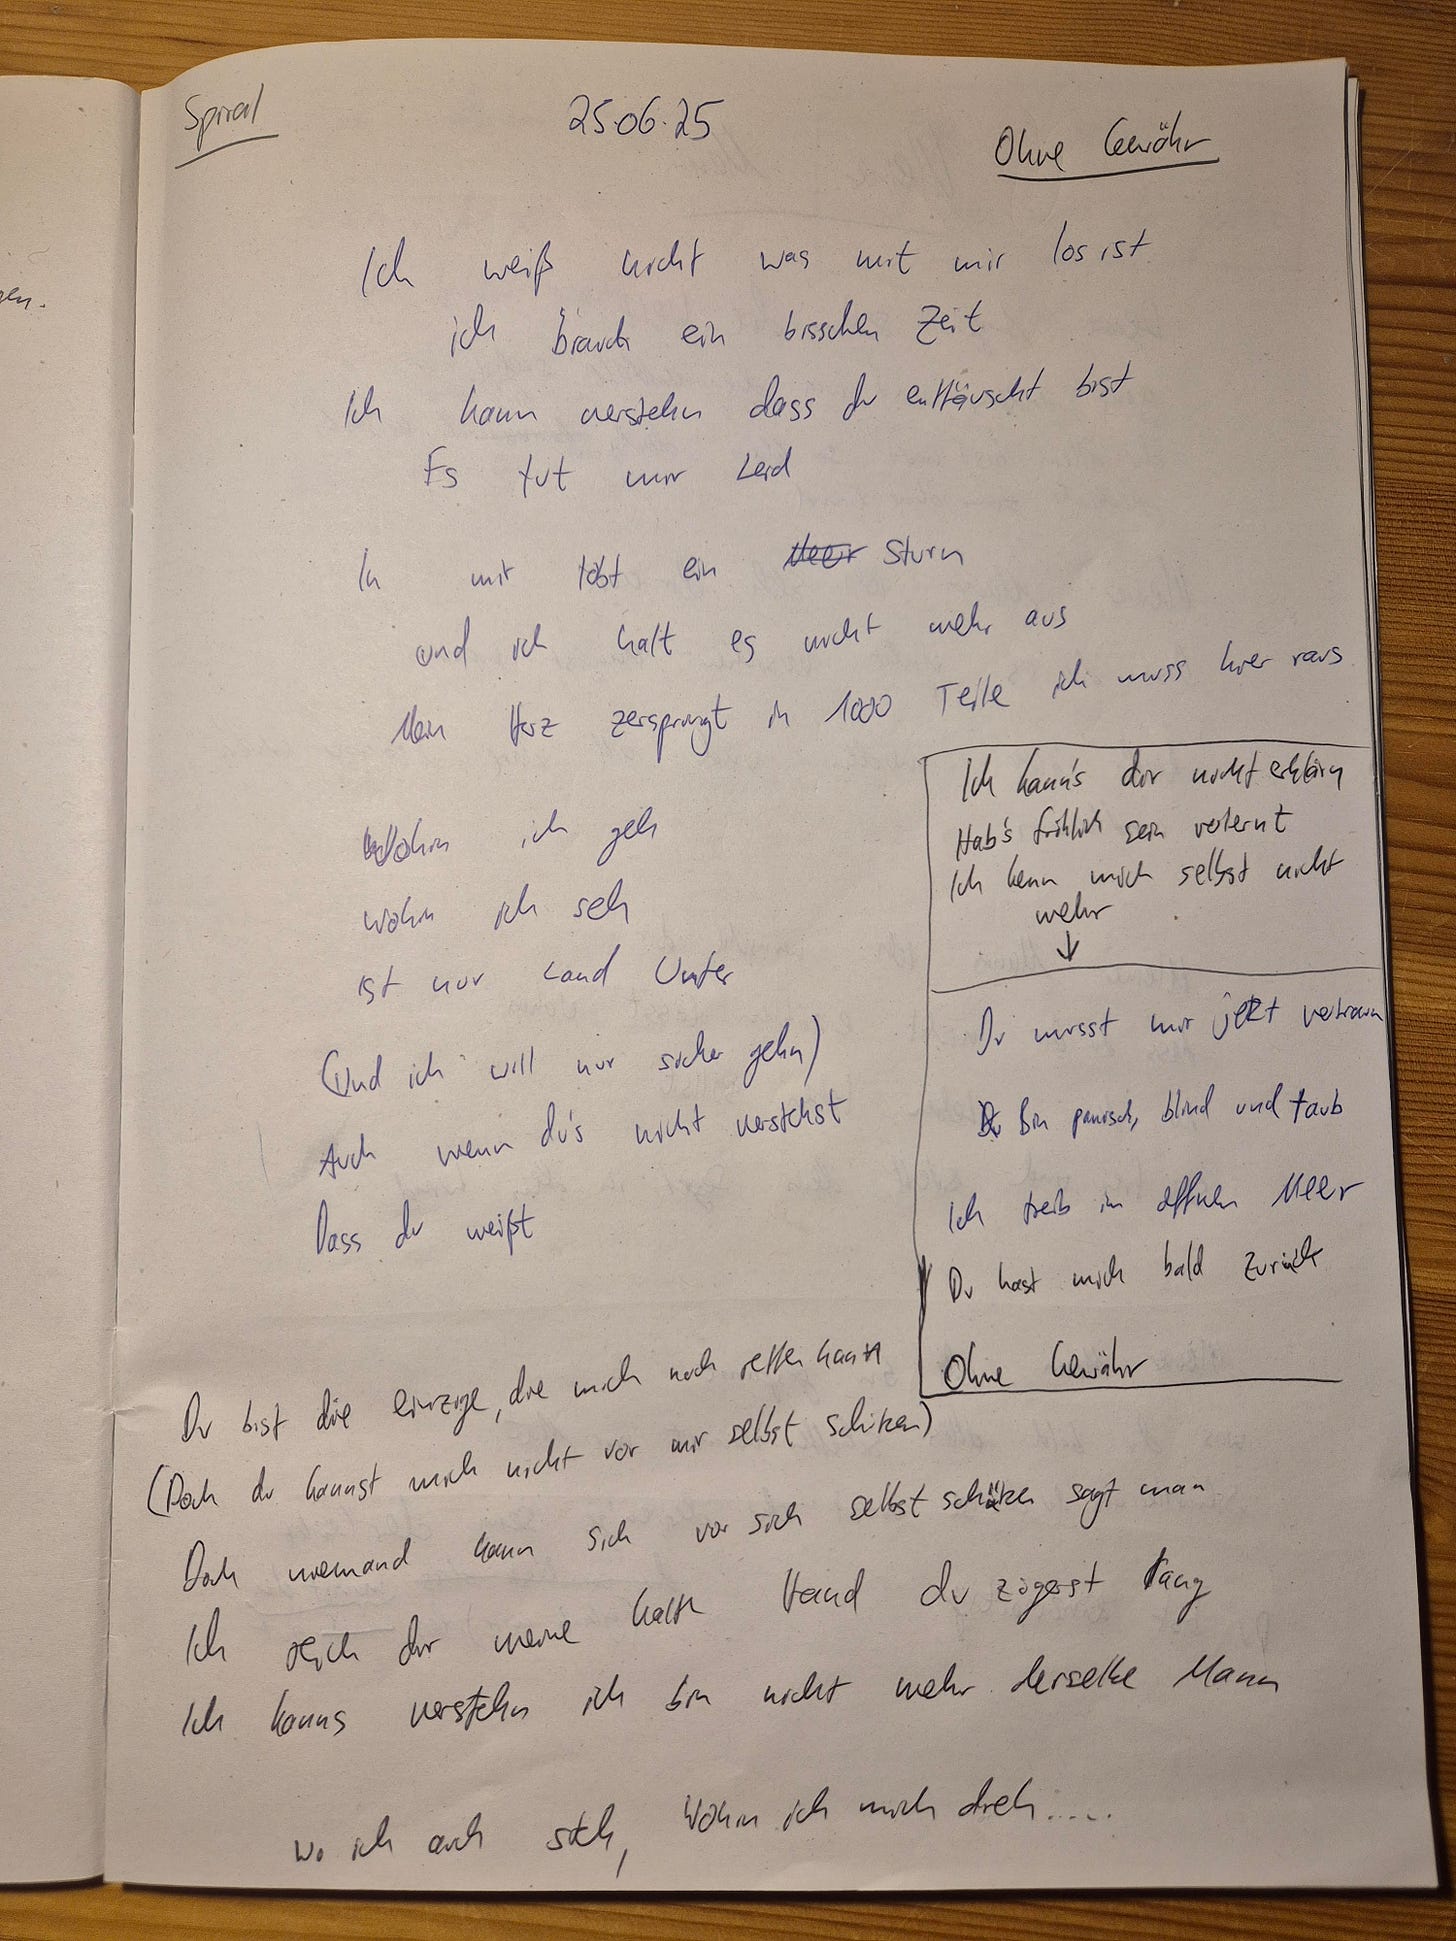 gen.
Spiral
25.06.25
Ohne Gewähr
Ich weiß nicht was mit mir los ist
ich brauch ein bisschen Zeit
Ich kann verstehn dass du enttäuscht bist
Es tut mir Leid
In mir tobt ein Sturm
und ich halt es nicht mehr aus
Mein Herz zerspringt in 1000 Teile ich muss hier raus
Wohin ich geh
wohin ich seh
ist nur Land Unter
(Und ich will nur sicher gehn)
Auch wenn du's nicht verstehst
Dass du weißt
Ich kann's dir nicht erklärn
Hab's fröhlich sein verlernt
Ich kenn mich selbst nicht
mehr
↓
Du musst mir jetzt vertraun
Bin panisch, blind und taub
Ich treib im offnen Meer
Du hast mich bald zurück
Ohne Gewähr
Du bist die einzige, die mich noch retten kann
(Doch du kannst mich nicht vor mir selbst schützen)
Doch niemand kann sich vor sich selbst schützen sagt man
Ich reich dir meine kalte Hand du zögerst lang
Ich kanns verstehn ich bin nicht mehr derselbe Mann
Wo ich auch steh, Wohin ich mich dreh.....